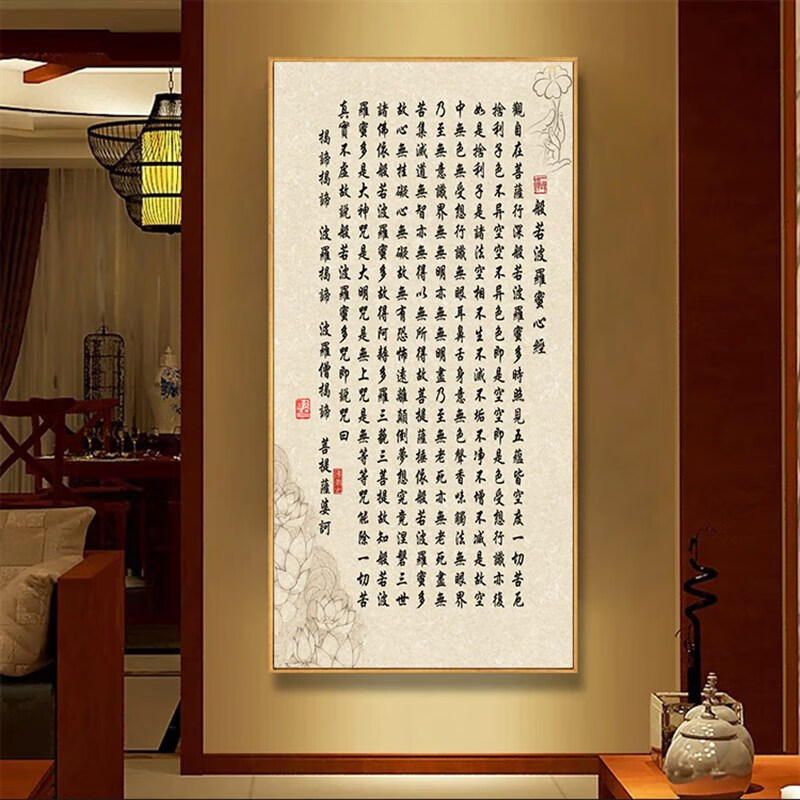 般若波羅蜜心經
觀自在菩薩行深般若波羅蜜多時照見五蘊皆空度一切苦厄
捨利子色不异空空不异色色即是空空即是色受想行識亦復
如是捨利子是諸法空相不生不滅不垢不净不增不减是故空
中無色無受想行識無眼耳鼻舌身意無色聲香味觸法無眼界
乃至無意識界無無明亦無無明盡乃至無老死亦無老死盡無
苦集滅道無智亦無得以無所得故菩提薩捶依般若波羅蜜多
故心無挂礙心無礙故無有恐怖遠離顛倒夢想究竟涅磐三世
諸佛依般若波羅蜜多故得阿耨多羅三藐三菩提故知般若波
羅蜜多是大神咒是大明咒是無上咒是無等等咒能除一切苦
真實不虛故說般若波羅蜜多咒即說咒曰
揭諦揭諦 波羅揭諦 波羅僧揭諦 菩提薩婆訶